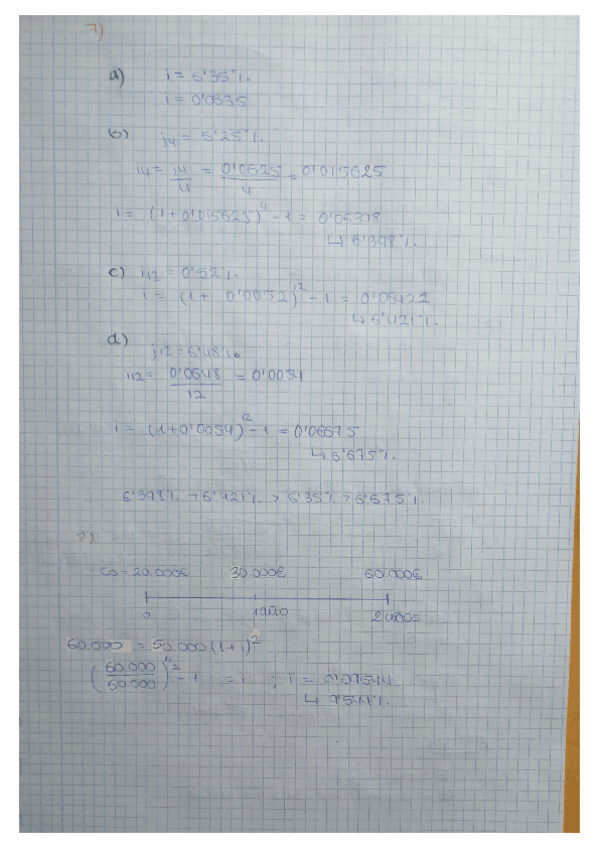 7)
a) i = 6'35%.
i = 0'0635
b) j4 = 6'25%.
i4 = j4/4 = 0'0625/4 = 0'015625
i = (1+0'015625)^4 - 1 = 0'06398
↳ 6'398%.
c) i12 = 0'52%.
i = (1 + 0'0052)^12 - 1 = 0'06422
↳ 6'421%.
d)
j12 = 6'48%
i12 = 0'0648/12 = 0'0054
i = (1+0'0054)^12 - 1 = 0'06675
↳ 6'675%.
6'398% > 6'421% > 6'35% > 6'675%.
Co = 20.000€ 30.000€ 60.000€
0 1 año 2 años
60.000 = 50.000 (1+i)^2
(60.000/50.000)^1/2 - 1 = i ; i =